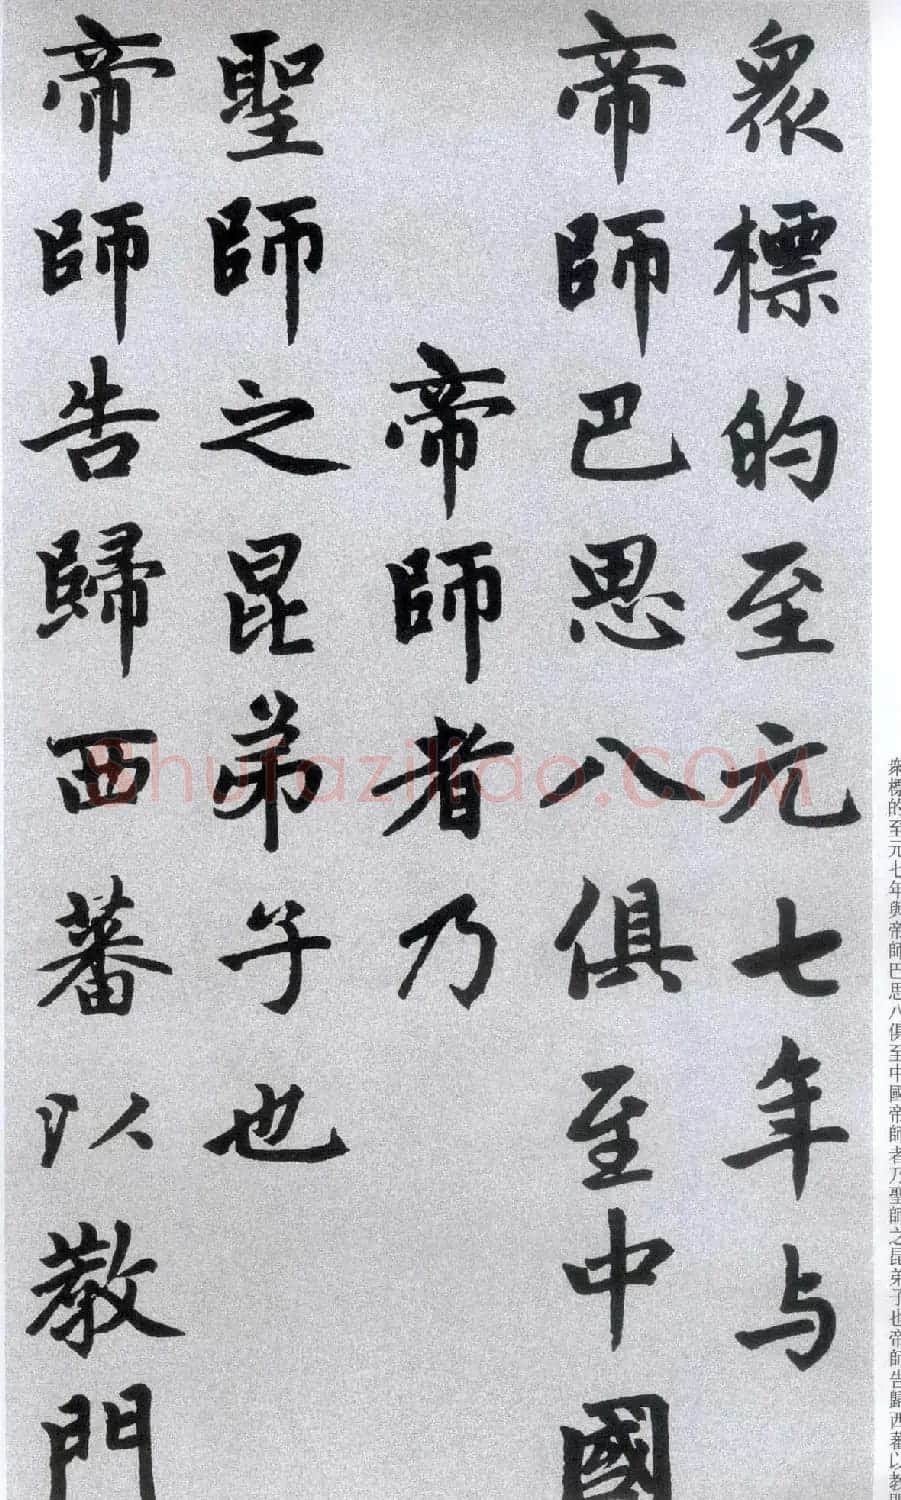 衆標的至元七年与
帝師巴思八俱至中國
帝師者乃
聖師之昆弟子也
帝師告歸西蕃以教門
衆標的至元七年與帝師巴思八俱至中國帝師者乃聖師之昆弟子也帝師告歸西蕃以教門
Shufaziliao.COM